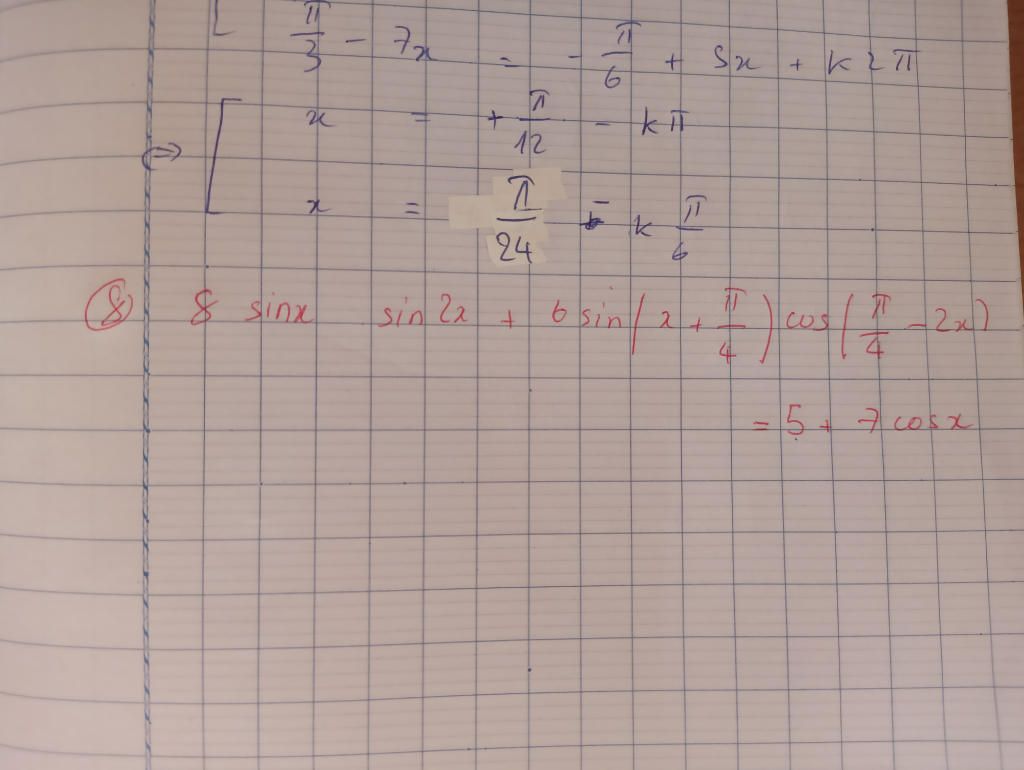 [ π/3 - 7x = - π/6 + 5x + k2π
⇔ [ x = + π/12 - kπ
x = π/24 - k π/6
⑧ 8 sinx sin2x + 6sin(x + π/4) cos(π/4 - 2x)
= 5 + 7cosx